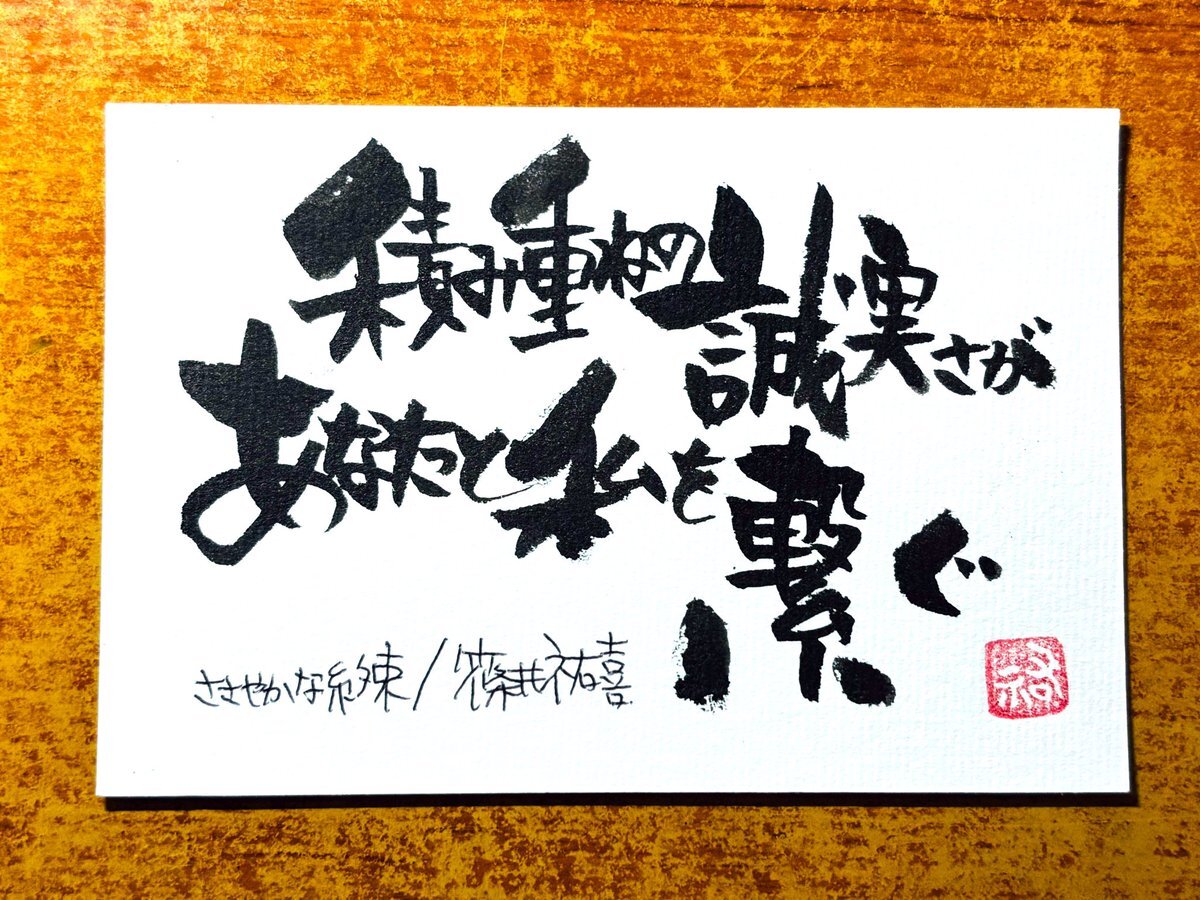 積み重ねの誠実さが
あなたと私を繋ぐ
ささやかな約束/篠井祐喜